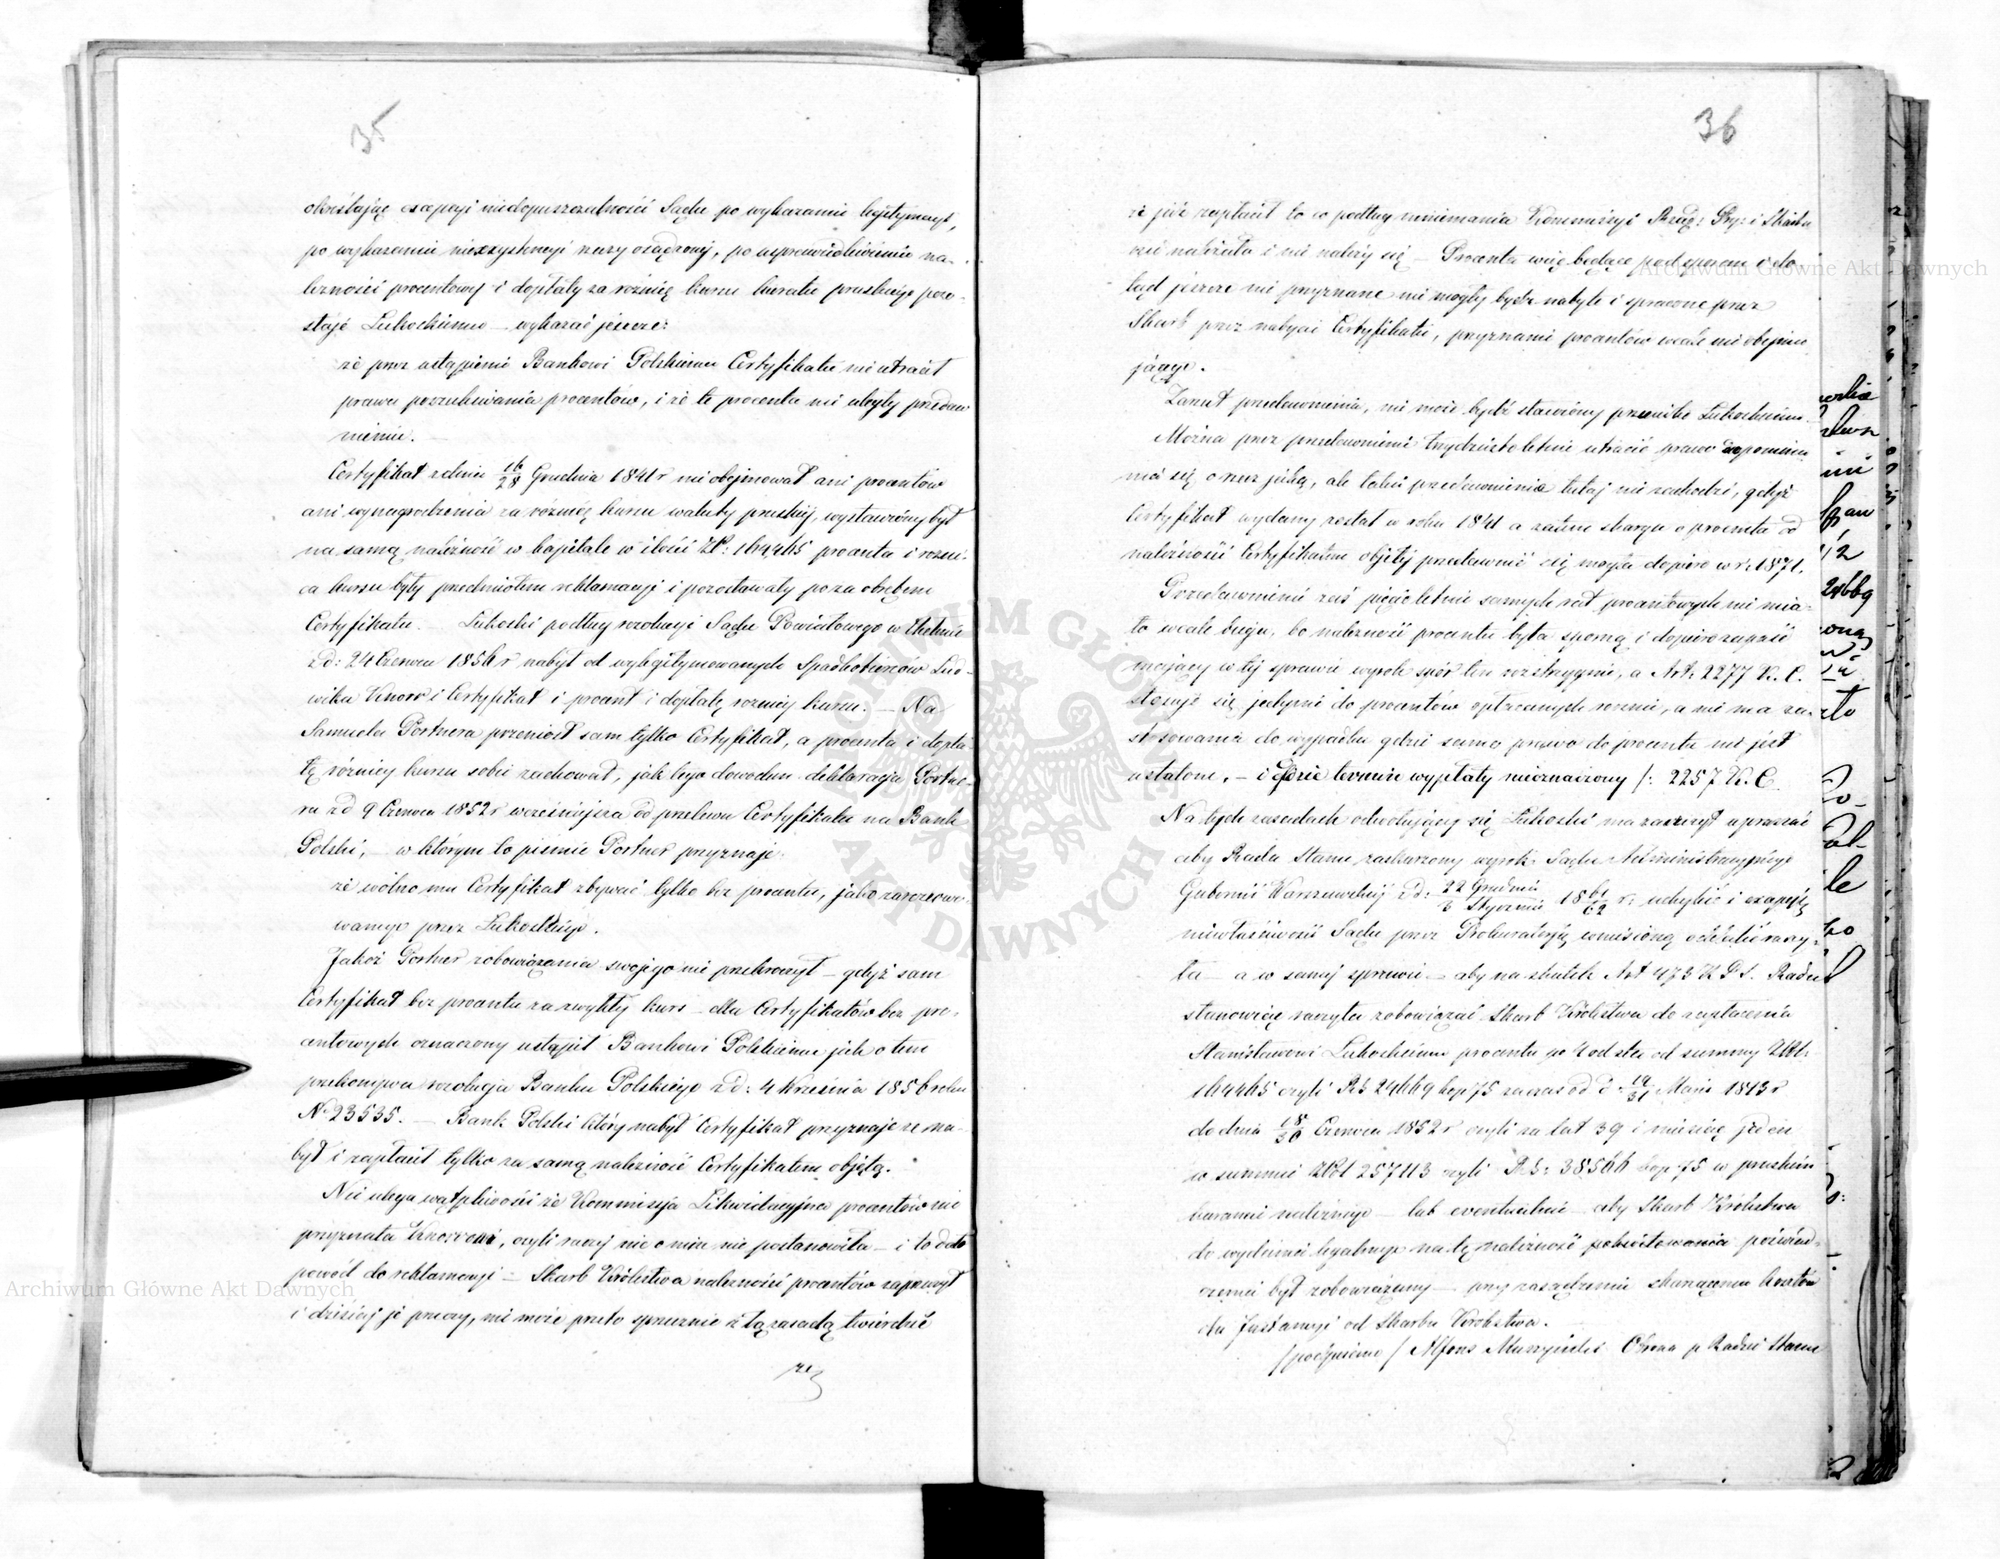 35
określając excepcyi niedopuszczalności Sądu po wykazaniu legitymacyi,
po wykazaniu nieczystości rzeczy osądzonej, po usprawiedliwieniu na-
leżności procentowej i dopłaty za różnicę kursu kuratu pruskiego pozo-
staje Łukoskiemu – wykazać jeszcze:
że przez ustąpienie Bankowi Polskiemu Certyfikatu nie utracił
prawa poszukiwania procentów, i że te procenta nie uległy przedaw
nieniu. –
Certyfikat z dnia 16/28 Grudnia 1841 r nie obejmował ani procentów
ani wynagrodzenia za różnicę kursu waluty pruskiej, wystawiony był
na samą należność w kapitale w ilości ZłP: 164465 procenta i różni-
ca kursu były przedmiotem reklamacyi i pozostawały poza obrębem
Certyfikatu. – Łukoski podług rezolucyi Sądu Powiatowego w Chełmie
z d: 24 Czerwca 1856 r nabył od wylegitymowanych Spadkobierców Lud-
wika Knorr i Certyfikat i procent i dopłatę różnicy kursu. – Na
Samuela Portnera przeniósł sam tylko Certyfikat, a procenta i dopła-
tę różnicy kursu sobie zachował, jak tego dowodem deklaracja Portne-
ra z d 9 Czerwca 1852 r wcześniejsza od przelewu Certyfikatu na Bank
Polski, – w którym to piśmie Portner przyznaje:
że wolno mu Certyfikat zbywać tylko bez procentu, jako zarezerwo-
wanego przez Łukoskiego.
Jakoż Portner zobowiązania swojego nie przekroczył – gdyż sam
Certyfikat bez procentu za zwykły kurs – dla Certyfikatów bez pro-
centowych oznaczony ustąpił Bankowi Polskiemu jak o tem
przekonywa rezolucja Banku Polskiego z d: 4 Września 1856 roku
N 23535. – Bank Polski który nabył Certyfikat przyznaje że na-
był i zapłacił tylko za samą należność Certyfikatem objętą.
Nie ulega wątpliwości że Kommissja Likwidacyjna procentów nie
przyznała Knorrowi, czyli raczej nic o nim nie postanowiła – i to dało
powód do reklamacyi – Skarb Królestwa należności procentów zaprzeczył
i dzisiaj je przeczy, nie może przeto sprzecznie z tą zasadą twierdzić
że
36
że już zapłacił to co podług mniemania Kommissyi Rząd: Prz: i Skarbu
nie należało i nie należy się – Procenta więc będące pod sporem i do
tąd jeszcze nie przyznane nie mogły być nabyte i spłacone przez
Skarb przez nabycie Certyfikatu, przyznania procentów wcale nie obejmu
jącego.
Zarzut przedawnienia, nie może bydź stawiony przeciwko Łukoskiemu.
Można przez przedawnienie trzydziestoletnie utracić prawo dopomina
nia się o rzecz jaką, ale takie przedawnienie tutaj nie zachodzi, gdyż
Certyfikat wydany został w roku 1841 a zatem skarga o procenta od
należności Certyfikatem objętej przedawnić się mogła dopiero w r. 1871.
Przedawnienie zaś pięcioletnie samych rat procentowych nie mia-
ło wcale biegu, bo należność procentu była sporną i dopiero zapaść
mający w tej sprawie wyrok spór ten rozstrzygnie, a Art: 2277 K. C.
stosuje się jedynie do procentów opłacanych rocznie, a nie ma za-
stosowania do wypadku gdzie samo prawo do procentu nie jest
ustalone, – i gdzie termin wypłaty nieoznaczony /: 2257 K. C.
Na tych zasadach odwołujący się Łukoski ma zaszczyt upraszać
aby Rada Stanu zaskarżony wyrok Sądu Administracyjnego
Gubernii Warszawskiej z d: 22 Grudnia/3 Stycznia 1861/62 r: uchylić i excepcją
niewłaściwości Sądu przez Prokuratoryą wniesioną oddalić raczy-
ła – a w samej sprawie – aby na skutek Art 473 K P S. Rada
stanowiąc raczyła zobowiązać Skarb Królestwa do zapłacenia
Stanisławowi Łukoskiemu procentu po 4 od sta od summy Złot:
164465 czyli RS 24669 kop 75 za czas od d. 19/31 Maja 1813 r
do dnia 18/30 Czerwca 1852 r czyli za lat 39 i miesiąc jeden
w summie Złot 257113 czyli RS: 38566 kop 75 w pruskim
kurancie należnego – lub ewentualnie – aby Skarb Królestwa
do wydania legalnego na tę należność pokwitowania poświad-
czenia był zobowiązany – przy zasądzeniu skarżącemu kosztów
dla Jnstancyi od Skarbu Królestwa.
/podpisano/ Alfons Muszyński Obrońca p Radzie Stanu